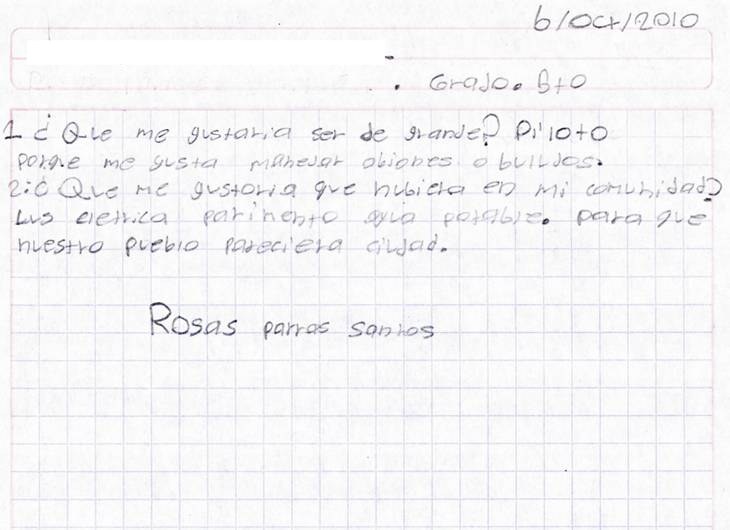 6/Oct/2010
. Grado. 6to
1 ¿ Que me gustaria ser de grande? Piloto
porque me gusta manejar abiones o buildos.
2: ¿ Que me gustaria que hubiera en mi comunidad?
Lus eletrica parimento agua potable. para que
nuestro pueblo pareciera ciudad.
Rosas parras santos